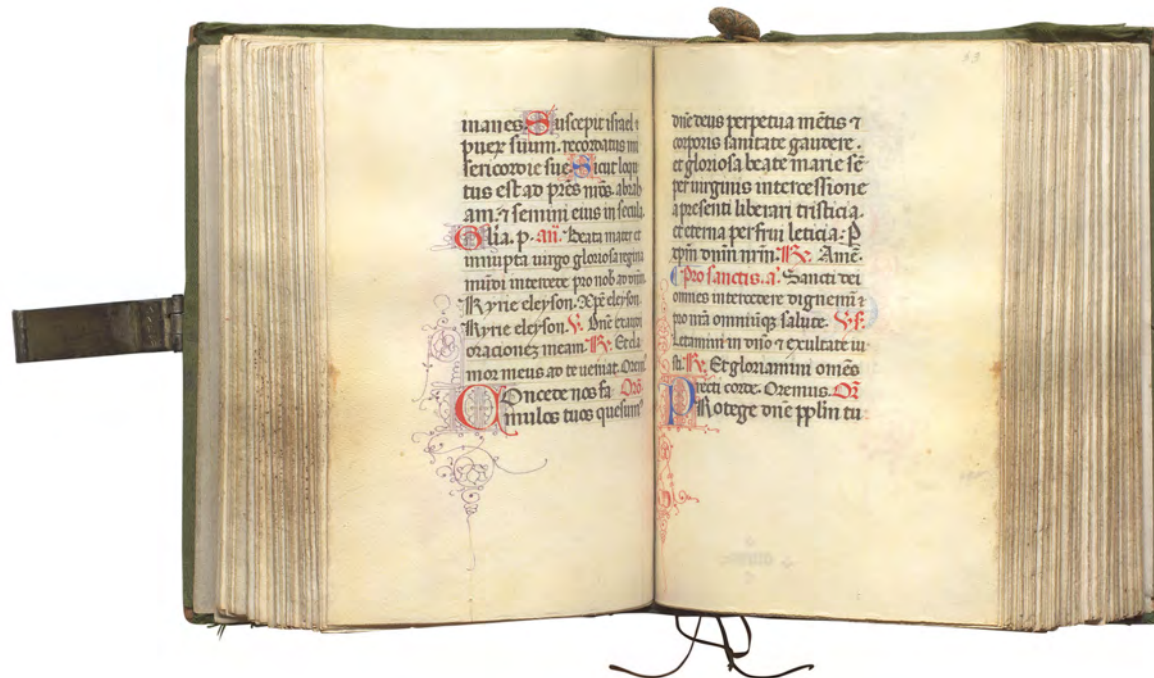 inanes. Suscepit israel
puerz suum. recordatus mi
sericordie sue. Sicut locu
tus est ad pres nros. abrah
am. ⁊ semini eius in secula.
Glia. p. an. Beata mater et
innupta uirgo gloriosa regina
mudi intercede pro nob ad dnm.
Kyrie eleyson. Xpe eleyson.
Kyrie eleyson. V. Dne exaudi
oracionez meam. R. Et cla
mor meus ad te ueniat. Orem
Concede nos fa Oro
mulos tuos quesum
53
dne deus perpetua metis ⁊
corporis sanitate gaudere.
et gloriosa beate marie se
per uirginis intercessione
a presenti liberari tristicia.
et eterna perfrui leticia: P
xpm dnm nrm. R. Ame.
Pro sanctis. a. Sancti dei
omnes intercedere dignemi
pro nra omniuqz salute. Vs.
Letamini in dno ⁊ exultate iu
sti. R. Et gloriamini omes
recti corde. Oremus. Or
Protege dne pplm tu